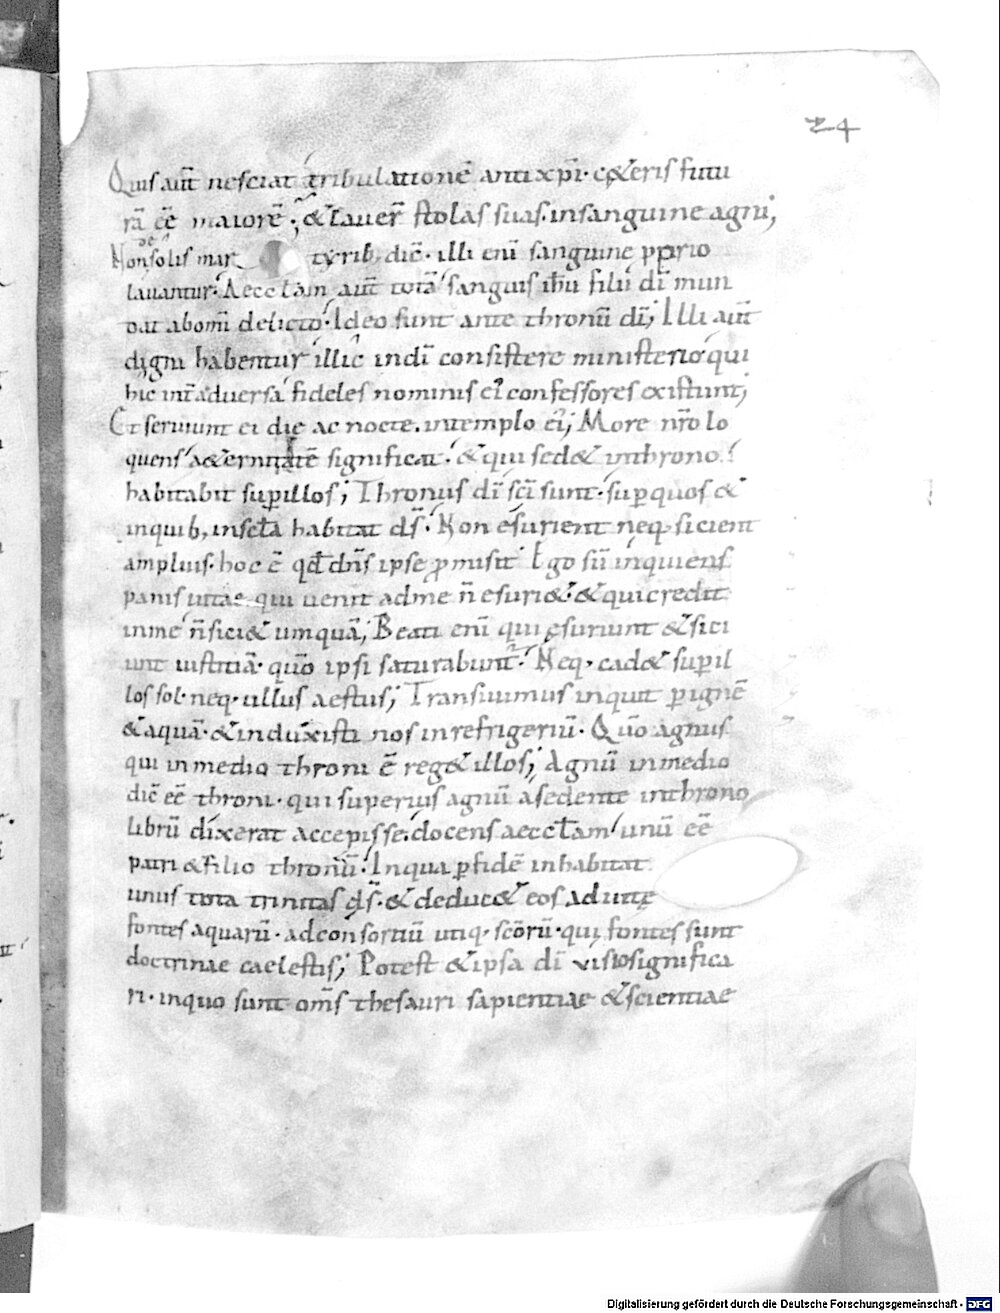 24
Quis aut̄ nesciat tribulationē antixp̄i · c&eris futu
rā eē maiorē ; & lauer̄ stolas suas · insanguine agni ;
de
Nonsolis mar tyrib; dic̄ · illi enī sanguine pprio
lauantur · Aecc̄lam aut̄ totā sanguis ih̄u filii dī mun
dat abomī delicto · Ideo sunt ante thronū dī ; Illi aut̄
digni habentur illic indī consistere ministerio qui
hic int̄ aduersa fideles nominis ei confessores existunt ;
Et seruiunt ei die ac nocte · intemplo ei ; More nr̄o lo
quens a&ernitatē significat · & qui sed& inthrono
habitabit sup illos ; Thronus dī sc̄i sunt · sup quos &
inquib; insc̄ta habitat dn̄s · Non esurient neq; sicient
amplius · hoc ē qd̄ dn̄s ipse promisit Ego sū inquiens
panis uitae qui uenit adme n̄ esuri& · & qui credit
inme n̄ sici& umquā ; Beati enī qui esuriunt & sici
unt iustitiā · quō ipsi saturabunt · Neq; cad& sup il
los sol · neq; ullus aestus ; Transiuimus inquit p ignē
& aquā · & induxisti nos inrefrigeriū · Quō agnus
qui inmedio throni ē reg& illos ; Agnū inmedio
dic̄ eē throni · qui superius agnū asedente inthrono
librū dixerat accepisse · docens aecc̄lam unū eē
patri & filio thronū · Inqua p fidē inhabitat
unus tota trinitas ds̄ · & deduc& eos aduitę
fontes aquarū · adconsortiū utiq; scōrū · qui fontes sunt
doctrinae caelestis ; Potest & ipsa dī uisio significa
ri · inquo sunt om̄s thesauri sapientiae & scientiae
Digitalisierung gefördert durch die Deutsche Forschungsgemeinschaft - DFG